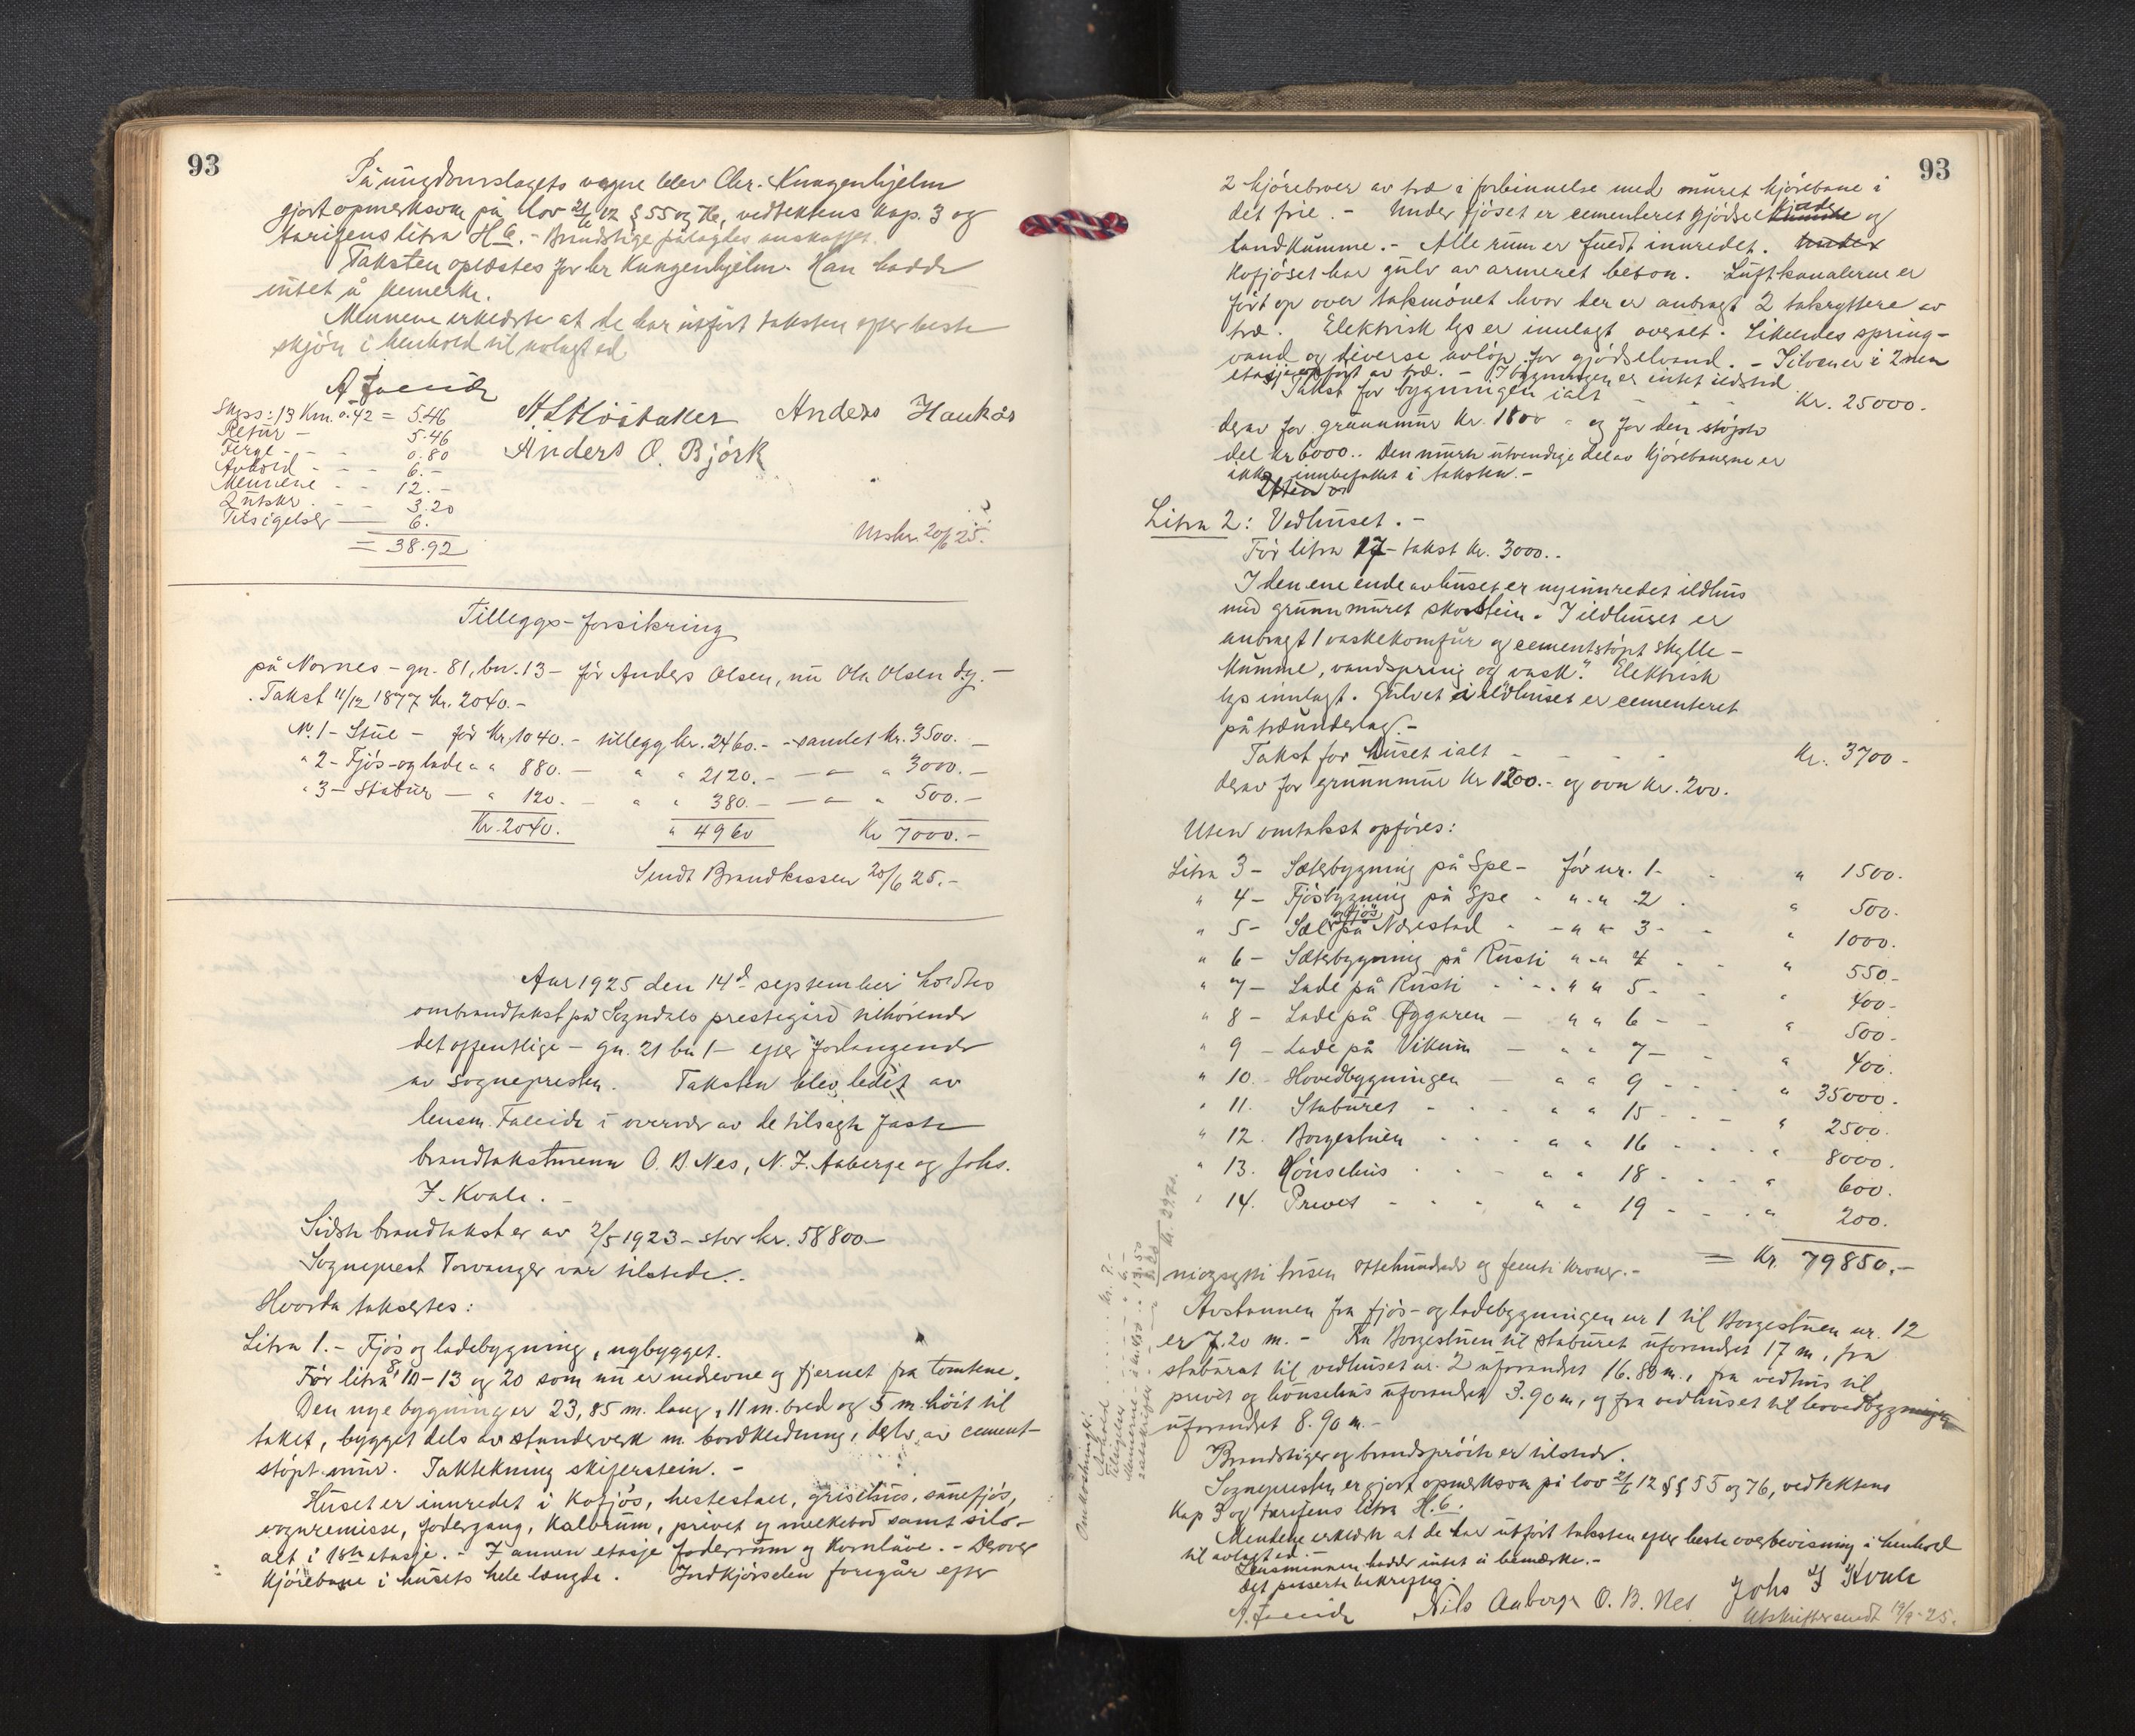 93
På ungdomslagets vegne blev Chr. Kungenhjelm
gjort opmerksom på lov 21/6 12 § 55 og 76, vedtektens kap. 3 og
tarifens litra H 6. - Brandstige pålagdes anskaffet.
Taksten oplæstes for hr Kungenhjelm. Han hadde
intet å bemerke.
Mennene erklærte at de har utført taksten efter beste
skjön i henhold til avlagt ed
A Faleide
A L Höstaker Anders Haukås
Anders O. Björk
Skyss: 13 Km. à 42 = 5.46
Retur - 5.46
Ferge - - - 0.80
Avhold - - - 6.-
Mennene - - 12.-
2 utskr. - - 3.20
Tilsigelser 6.
= 38.92
Utskr. 20/6 25.
Tilleggs-forsikring
på Nornes - gn. 81, bn. 13 - för Anders Olsen, nu Ola Olsen d.y. -
Takst 11/12 1877 kr. 2040.-
No. 1 - Stue - för Kr. 1040.- tillegg kr. 2460.- samlet kr. 3500.-
" 2 - Fjös- og lade " " 880.- " " 2120.- - " - " 3000.-
" 3 - Stabur - " 120.- " " 380.- - " - " 500.-
Kr. 2040. " 4960 Kr 7000.-
Sendt Brandkassen 20/6 25.-
Aar 1925 den 14de september holdtes
ombrandtakst på Sogndals prestegård tilhörende
det offentlige - gn. 21 bn 1 - efter forlangende
av sognepresten. Taksten blev ledet av
lensm. Faleide i overvær av de tilsagte faste
brandtakstmenn O. B. Nes, N. J. Aaberge og Johs.
J. Kvale. -
Sidste brandtakst er av 2/5 1923 - stor kr. 58800.-
Sogneprest Torvanger var tilstede. -
Hvorda taksertes:
Litra 1. - Fjös og ladebygning, nybygget.
För litra 8, 10-13 og 20 som nu er nedrevne og fjernet fra tomtene.
Den nye bygning er 23,85 m. lang, 11 m. bred og 5 m. höit til
taket, bygget dels av stenderverk m. bordkledning, dels av cement-
stöpt mur. Taktekning skiferstein. -
Huset er innredet i kofjös, hestestall, grisehus, sauefjös,
vognremisse, fodergang, kalverum, privet og melkebod samt silo-
alt i 1ste etasje. - I annen etasje foderrum og kornlåve. - Derover
kjörebane i husets hele længde. Indkjörselen foregår efter
93
2 kjörebroer av træ i forbinnelse med muret kjörebane i
det frie. - Under fjöset er cementeret gjödselkjeller og
landkumme. - Alle rum er fuldt innredet. Under
Kofjöset har gulv av armeret beton. Luftkanalerne er
fört op over takmönet hvor der er anbragt 2 takryttere av
træ. Elektrisk lys er innlagt overalt. Likeledes spring-
vand og diverse avlöp for gjödselvand. - Siloen er i 2nen
etasje opfört av træ. - I bygningen er intet ildsted
Takst for bygningen ialt - - - Kr. 25000.
derav for grunnmur Kr. 1800 - og for den stöpte
del kr 6000.. Den murte utvendige del av kjörebanerne er
ikke innbefattet i taksten. -
Litra 2: Vedhuset. -
För litra 17 - takst kr. 3000..
I den ene ende av huset er nyinnredet ildhus
med grunnmuret skorstein. I ildhuset er
anbragt 1 vaskekomfur og cementstöpt skylle-
kumme, vandspring og vask. Elektrisk
lys innlagt. Gulvet i ildhuset er cementeret
på træunderlag. -
Takst for huset ialt - - - - Kr. 3700 -
derav for grunnmur kr 1200.- og ovn kr. 200.
Uten omtakst opföres:
Litra 3 - Sæterbygning på Spe - för nr. 1 - " 1500.
" 4 - Fjösbygning på Spe - " - " 2 - " 500.
" 5 - Sel og fjös på Nærestad - - " " 3 - " 1000.
" 6 - Sæterbygning på Rusti " - " 4 - " 550.-
" 7 - Lade på Rusti - - " " 5 - " 400.-
" 8 - Lade på Öygaren - " " 6 - " 500.-
" 9 - Lade på Vikum - " " 7 - " 400.
" 10. Hovedbygningen - " " 9 - " 35000.-
" 11. Staburet - - " " 15 - " 2500.
" 12. Borgestuen - - " " 16 - " 8000.
" 13. Hönsehus - - " " 18 - " 600.
" 14. Privet - - " " 19 - " 200.
= Kr. 79850.-
niogsytti tusen ottehundrede og femti kroner. -
Avstannen fra fjös- og ladebygningen nr 1 til Borgestuen nr. 12
er 7.20 m. - Fra Borgestuen til staburet uforandret 17 m, fra
staburet til vedhuset nr. 2 uforandret 16.80 m., fra vedhus til
privet og hönsehus uforandret 3.90 m, og fra vedhuset til hovedbygningen
uforandret 8.90 m. -
Brandstiger og brandspröite er tilstede.
Sognepresten er gjort opmerksom på lov 21/6 12 §§ 55 og 76, vedtektens
Kap 3 og tarifens litra H. 6.
Mennene erklærte at de har utfört taksten efter beste overbevisning i henhold
til avlagt ed. -
Lensmannen hadde intet å bemerke. -
Det passerte bekreftes:
A. Faleide Nils Aaberge O. B. Nes Johs J Kvale
Utskrifter sendt 19/9 - 25.
Omkostninger:
Avhold kr. 9.-
Tilsigelser " 6.-
Mennene
2 utskrifter